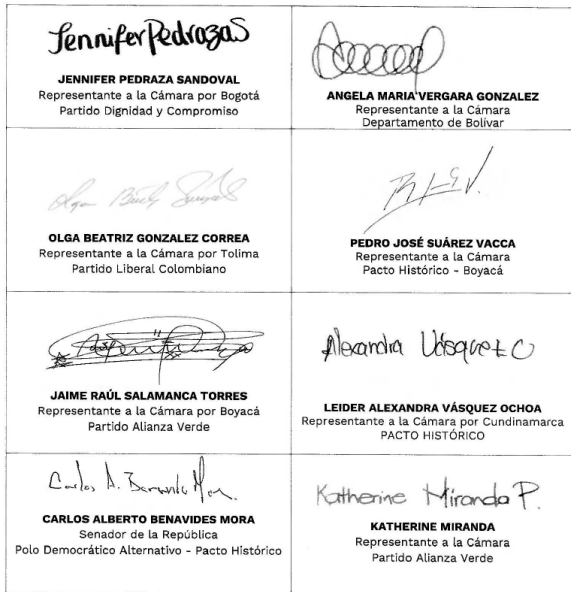 JenniferPedrazaS
JENNIFER PEDRAZA SANDOVAL
Representante a la Cámara por Bogotá
Partido Dignidad y Compromiso
ANGELA MARIA VERGARA GONZALEZ
Representante a la Cámara
Departamento de Bolívar
OLGA BEATRIZ GONZALEZ CORREA
Representante a la Cámara por Tolima
Partido Liberal Colombiano
PEDRO JOSÉ SUÁREZ VACCA
Representante a la Cámara
Pacto Histórico - Boyacá
JAIME RAÚL SALAMANCA TORRES
Representante a la Cámara por Boyacá
Partido Alianza Verde
Alexandra Vásquez O
LEIDER ALEXANDRA VÁSQUEZ OCHOA
Representante a la Cámara por Cundinamarca
PACTO HISTÓRICO
Carlos A. Benavides Mora
CARLOS ALBERTO BENAVIDES MORA
Senador de la República
Polo Democrático Alternativo - Pacto Histórico
Katherine Miranda P.
KATHERINE MIRANDA
Representante a la Cámara
Partido Alianza Verde